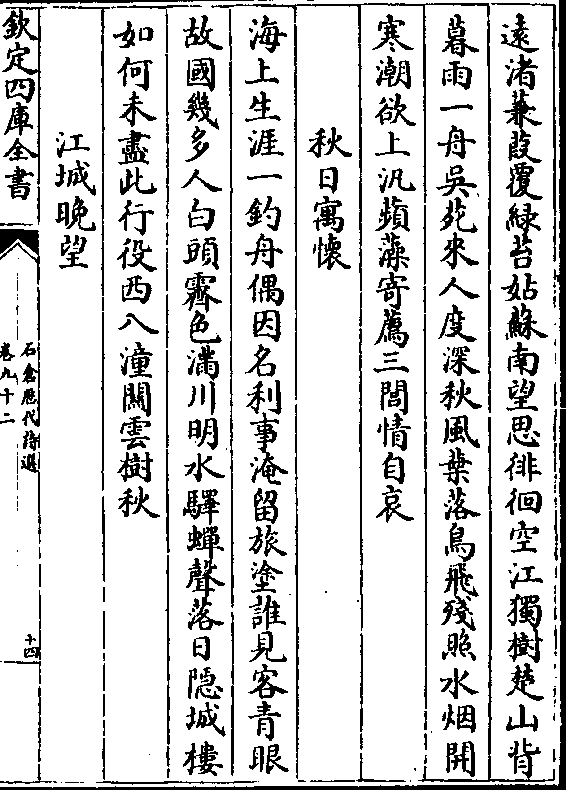 遠渚蒹葭覆緑苔姑蘇南望思徘徊空江獨樹楚山背
暮雨一舟吳苑來人度深秋風葉落鳥飛殘照水烟開
寒潮欲上汎蘋藻寄薦三閭情自哀
秋日寓懷
海上生涯一釣舟偶因名利事淹留旅塗誰見客青眼
故國幾多人白頭霽色滿川明水驛蟬聲落日隠城樓
如何未盡此行役西入潼關雲樹秋
江城晚望
欽定四庫全書
石倉歴代詩選
卷九十二
十四